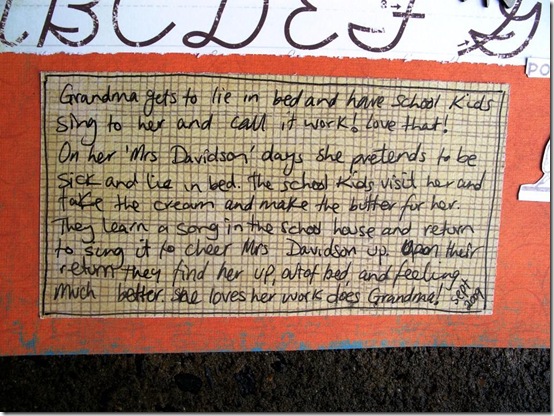 BCDEF G
PO
Grandma gets to lie in bed and have school kids
sing to her and call it work! Love that!
On her 'Mrs Davidson' days she pretends to be
sick and lie in bed. The school kids visit her and
take the cream and make the butter for her.
They learn a song in the school house and return
to sing it to cheer Mrs Davidson up. Upon their
return they find her up, out of bed and feeling
much better. She loves her work does Grandma!
Sept